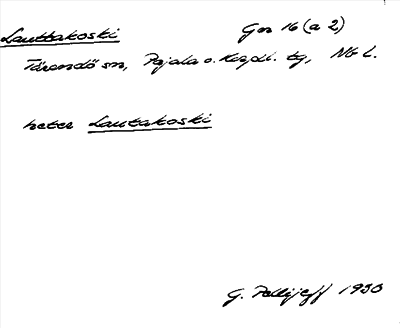 Lauttakoski Gm 16 (a 2)
Tärendö sn, Pajala o. Korpil. tg, Nb l.
heter Lautakoski
G. Pellijeff 1930